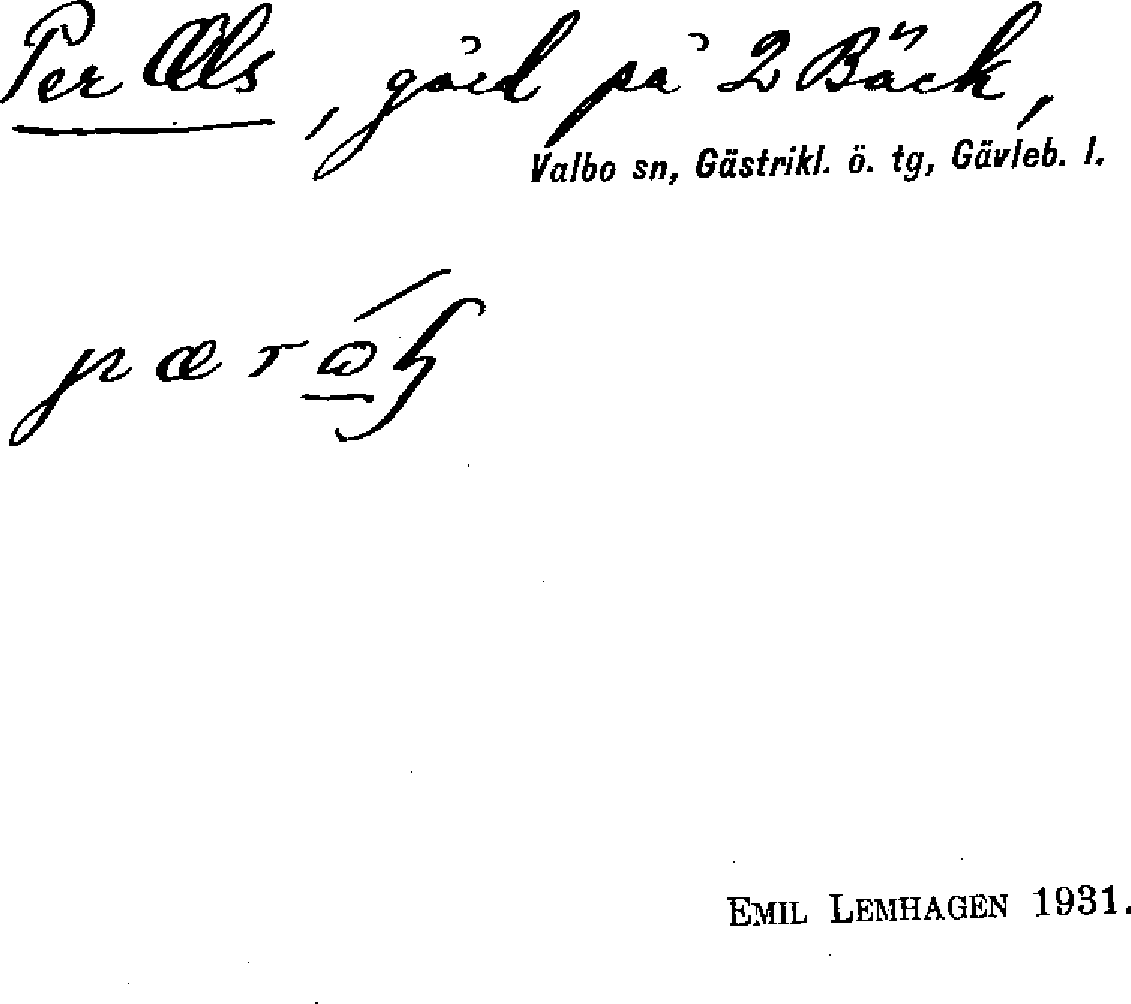 Per Ols, gård på 2 Bäck,
Valbo sn, Gästrikl. ö. tg, Gävleb. l.
EMIL LEMHAGEN 1931.